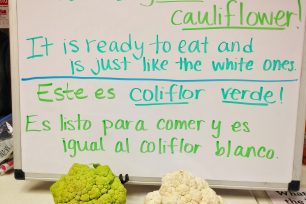 cauliflower!
It is ready to eat and
is just like the white ones.
Este es coliflor verde!
Es listo para comer y es
igual al coliflor blanco.